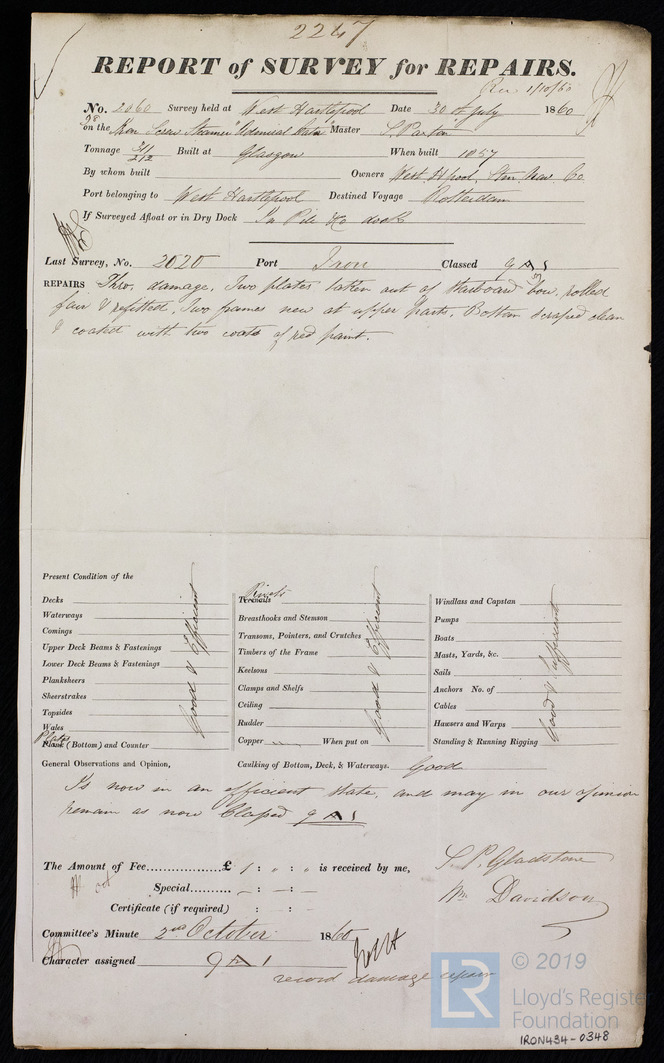 2247
REPORT of SURVEY for REPAIRS.
Rec 1/10/60
No. 2060 Survey held at West Hartlepool Date 30th July 1860
on the Iron Screw Steamer "Admiral Master S. Paxton
Tonnage 311/212 Built at Glasgow When built 1857
By whom built Owners West Hpool. Stm Nav. Co
Port belonging to West Hartlepool Destined Voyage Rotterdam
If Surveyed Afloat or in Dry Dock In Pile & Co dock
Last Survey, No. 2020 Port Iron Classed 9 A 1
REPAIRS Thro, damage, Two plates taken out of starboard bow, rolled
fair & refitted, Two frames new at upper parts. Bottom scraped clean
& coated with two coats of red paint.
Present Condition of the
Decks
Waterways
Comings
Upper Deck Beams & Fastenings
Lower Deck Beams & Fastenings
Planksheers
Sheerstrakes
Topsides
Wales
Plates
Plank (Bottom) and Counter
Good & Efficient
Rivets
Treenails
Breasthooks and Stemson
Transoms, Pointers, and Crutches
Timbers of the Frame
Keelsons
Clamps and Shelfs
Ceiling
Rudder
Copper When put on
Good & Efficient
Windlass and Capstan
Pumps
Boats
Masts, Yards, &c.
Sails
Anchors No. of
Cables
Hawsers and Warps
Standing & Running Rigging
Good & Efficient
General Observations and Opinion, Caulking of Bottom, Deck, & Waterways. Good
Is now in an efficient state, and may in our opinion
remain as now Classed 9 A 1
The Amount of Fee £ 1 : " : " is received by me,
Special – : – : –
Certificate (if required) : – : –
S. P. Gladstone
Wm. Davidson
Committee's Minute 2nd October 1860
Character assigned 9 A 1
record damage repair
© 2019
LR
Lloyd's Register
Foundation
IRON434-0348